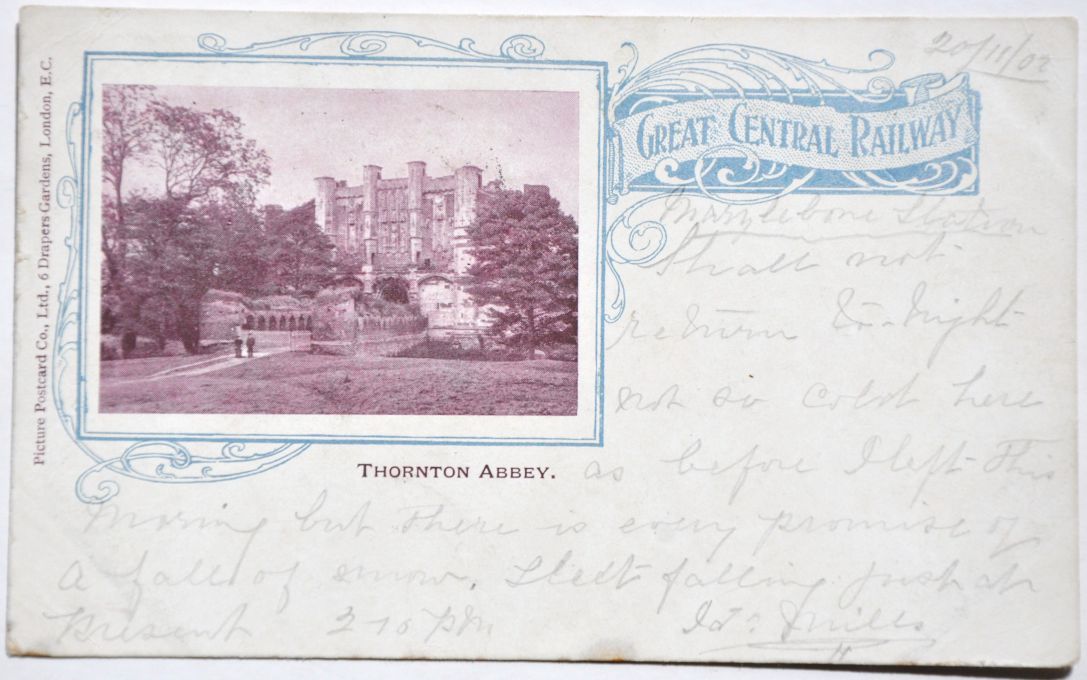 20/11/02
GREAT CENTRAL RAILWAY
Picture Postcard Co., Ltd., 6 Drapers Gardens, London, E.C.
Marylebone Station
Shall not
return to-Night
not so cold here
THORNTON ABBEY.
as before I left This
Moring but There is every promise of
A fall of snow. Sleet falling just at
Present 2-10 PM
Mills